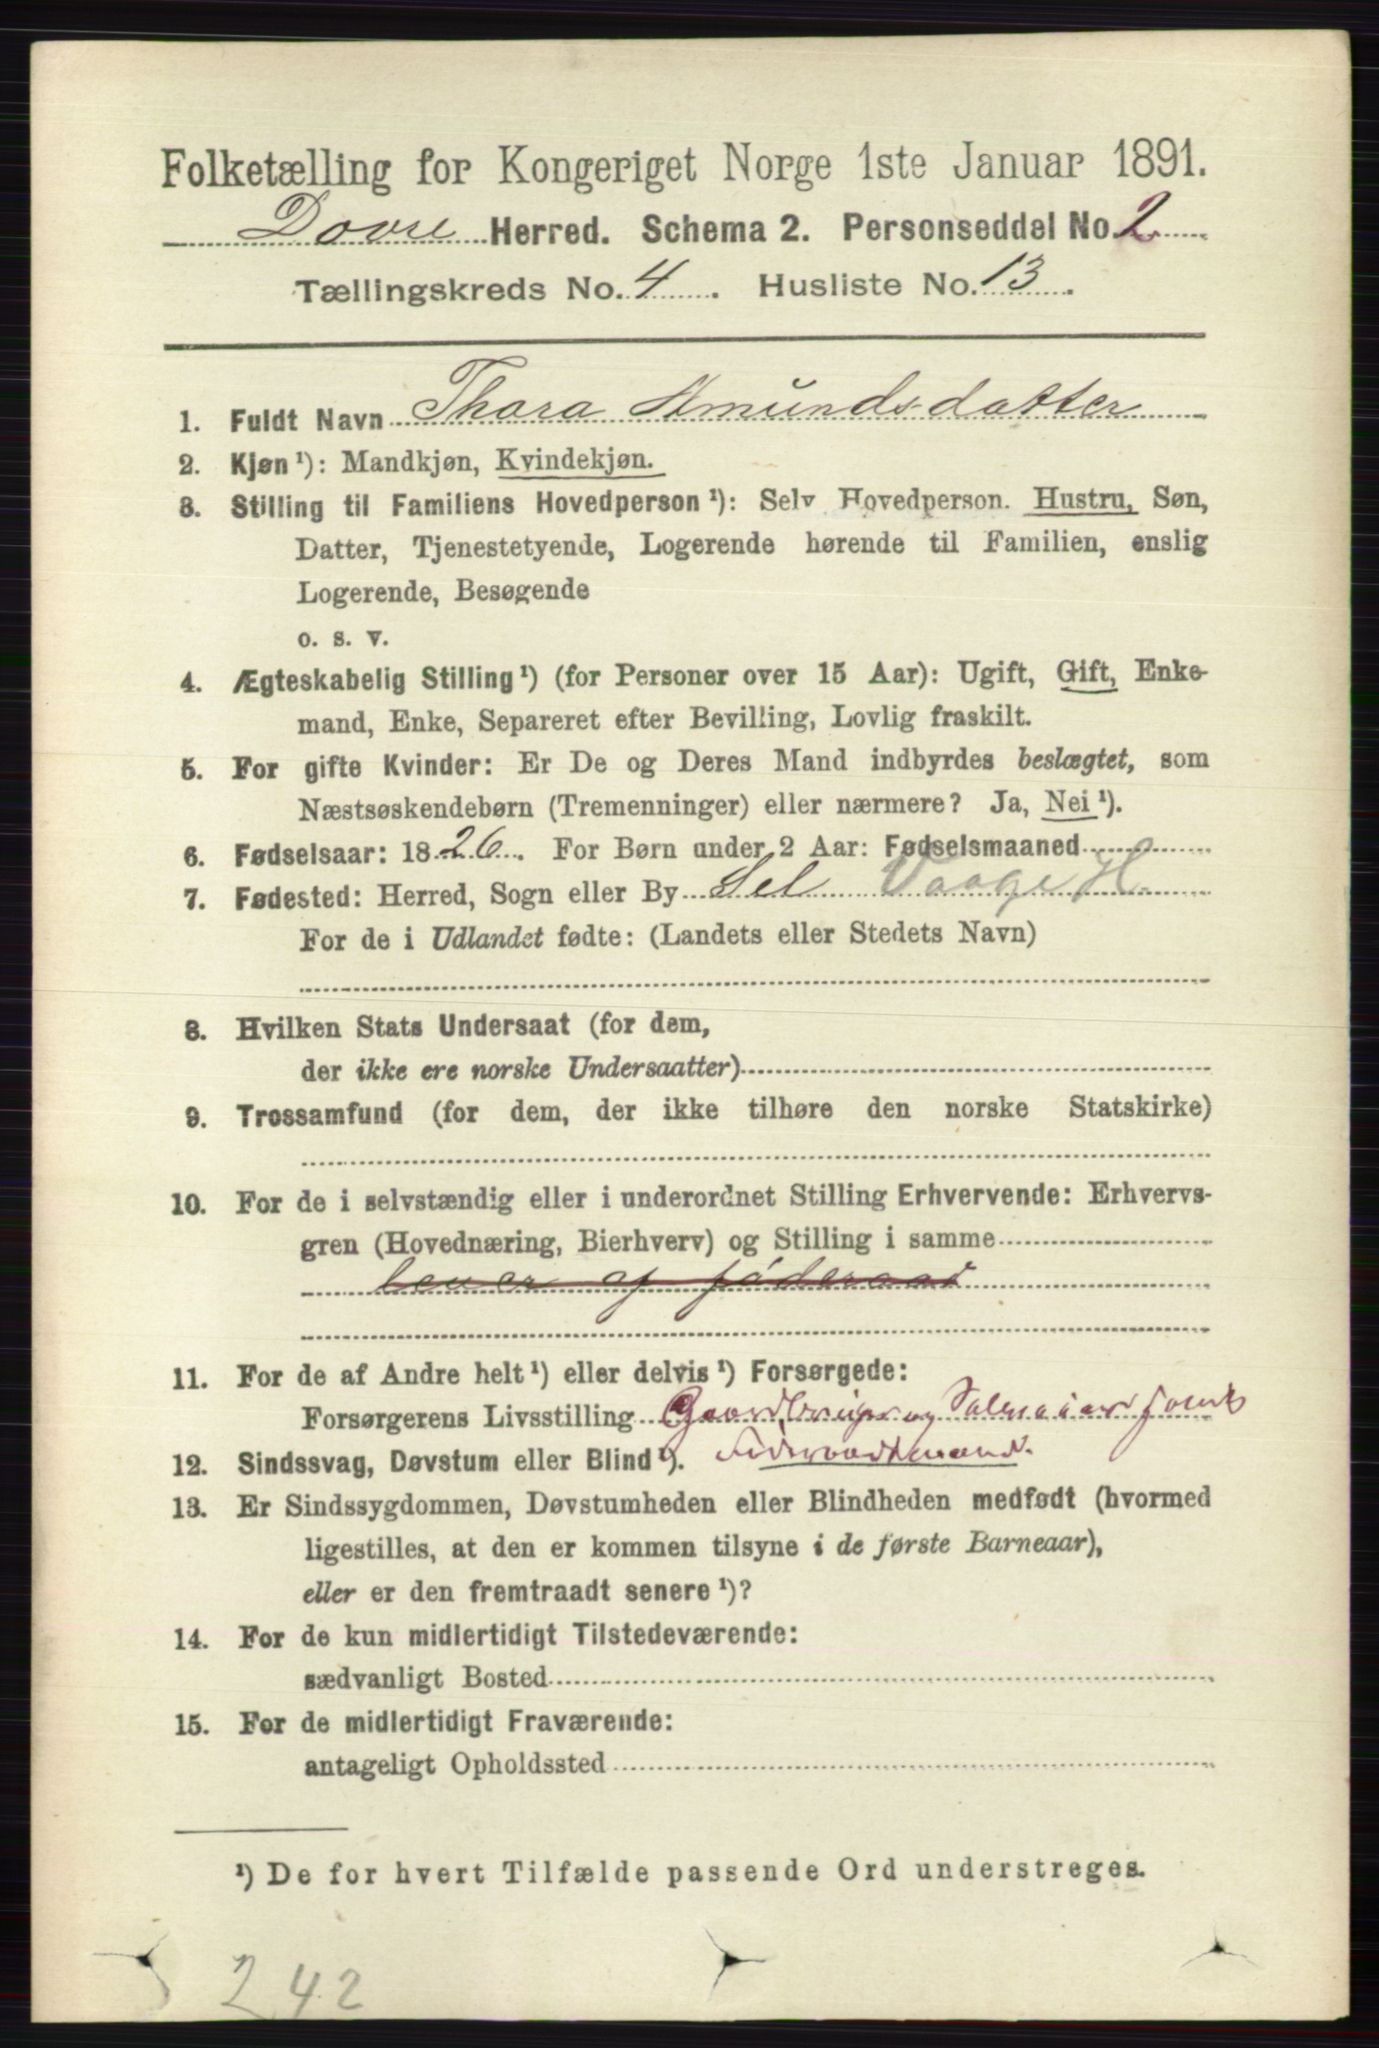 Folketælling for Kongeriget Norge 1ste Januar 1891.
Dovre Herred. Schema 2. Personseddel No. 2
Tællingskreds No. 4. Husliste No. 13.
1. Fuldt Navn Thora Amundsdatter
2. Kjøn ¹): Mandkjøn, Kvindekjøn.
3. Stilling til Familiens Hovedperson ¹): Selv Hovedperson. Hustru, Søn,
Datter, Tjenestetyende, Logerende hørende til Familien, enslig
Logerende, Besøgende
o. s. v.
4. Ægteskabelig Stilling ¹) (for Personer over 15 Aar): Ugift, Gift, Enke-
mand, Enke, Separeret efter Bevilling, Lovlig fraskilt.
5. For gifte Kvinder: Er De og Deres Mand indbyrdes beslægtet, som
Næstsøskendebørn (Tremenninger) eller nærmere? Ja, Nei ¹).
6. Fødselsaar: 1826. For Børn under 2 Aar: Fødselsmaaned
7. Fødested: Herred, Sogn eller By Sel Vaage H.
For de i Udlandet fødte: (Landets eller Stedets Navn)
8. Hvilken Stats Undersaat (for dem,
der ikke ere norske Undersaatter)
9. Trossamfund (for dem, der ikke tilhøre den norske Statskirke)
10. For de i selvstændig eller i underordnet Stilling Erhvervende: Erhvervs-
gren (Hovednæring, Bierhverv) og Stilling i samme
lever af føderaad
11. For de af Andre helt ¹) eller delvis ¹) Forsørgede:
Forsørgerens Livsstilling Gaardbruger og Salmager samt
Føderaadsmand.
12. Sindssvag, Døvstum eller Blind ¹).
13. Er Sindssygdommen, Døvstumheden eller Blindheden medfødt (hvormed
ligestilles, at den er kommen tilsyne i de første Barneaar),
eller er den fremtraadt senere ¹)?
14. For de kun midlertidigt Tilstedeværende:
sædvanligt Bosted
15. For de midlertidigt Fraværende:
antageligt Opholdssted
¹) De for hvert Tilfælde passende Ord understreges.
242